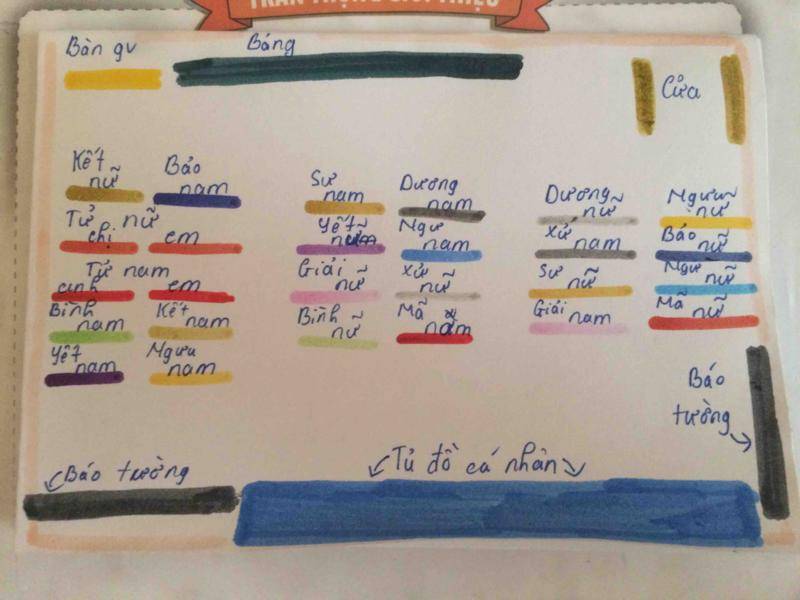 TRÂN TRỌNG GIỚI THIỆU
Bàn gv
Bảng
Cửa
Kết nữ
Bảo nam
Tử nữ
chị
em
Tử nam
anh
em
Bình nam
Kết nam
Yết nam
Ngưu nam
Sư nam
Dương nam
Yết nữ
Ngư nam
Giải nữ
Xử nữ
Bình nữ
Mã nam
Dương nữ
Ngưu nữ
Xử nam
Bảo nữ
Sư nữ
Ngư nữ
Giải nam
Mã nữ
Báo
tường
Báo tường
Tủ đồ cá nhân